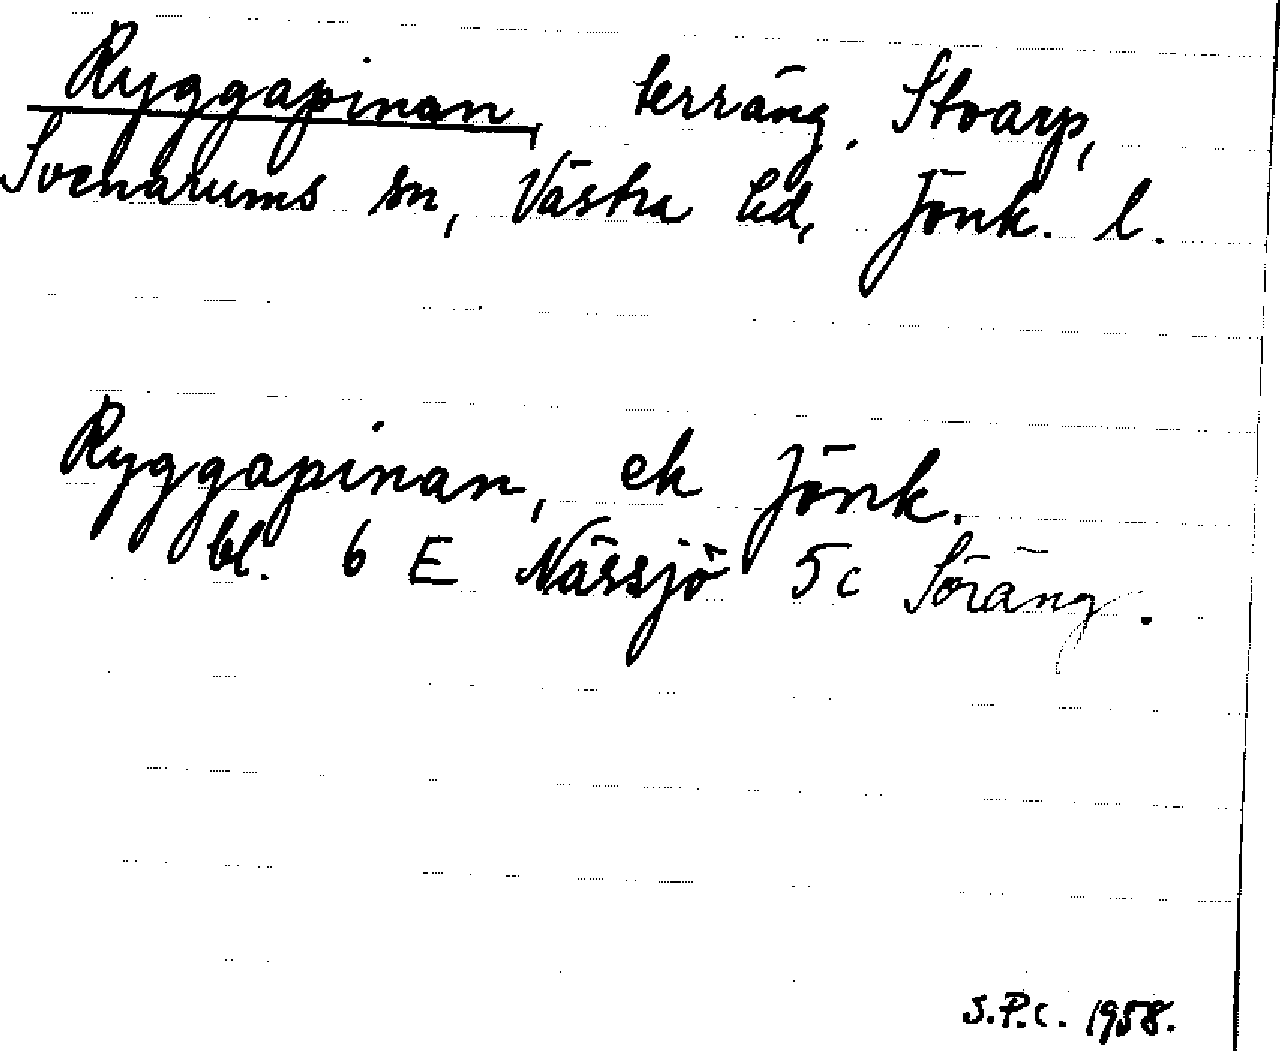 Ryggapinan, terräng. Stvarp,
Svenarums sn, Västra hd, Jönk. l.
Ryggapinan, ek Jönk.
bl. 6 E Nässjö 5c Söräng.
S.P.C. 1958.